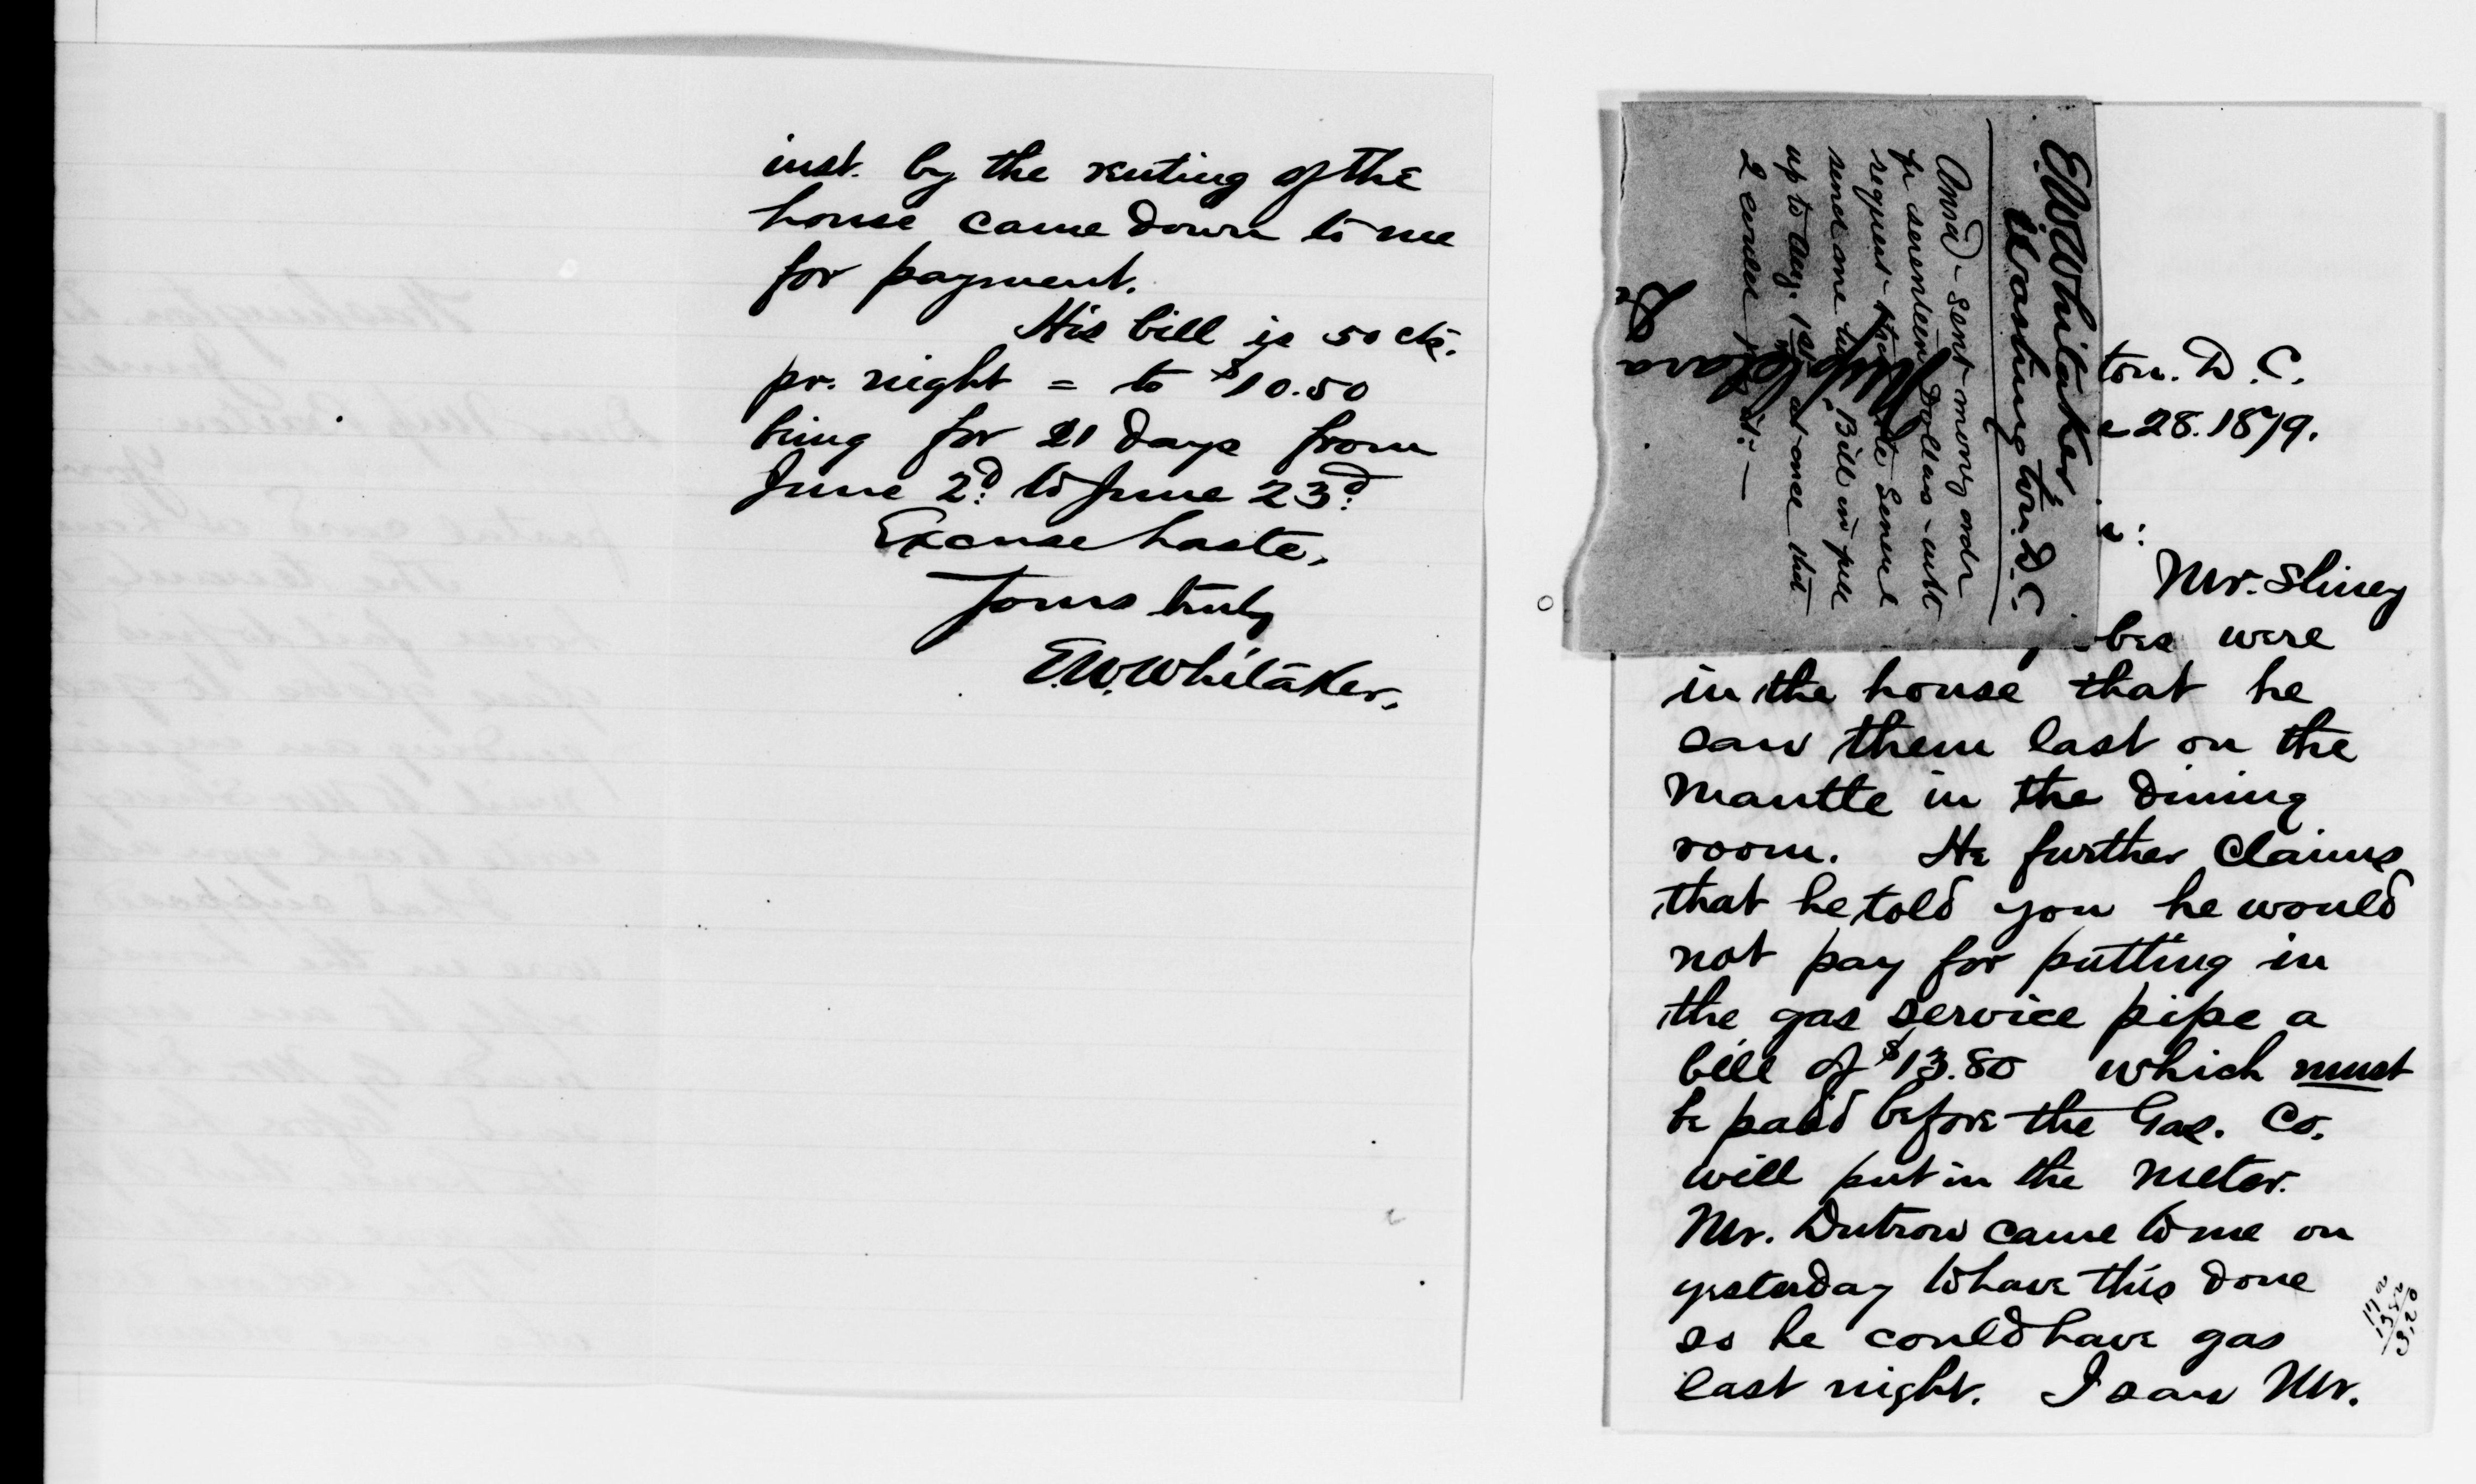 inst. by the renting of the
house came down to me
for payment.
His bill is 50 cts.
pr. night = to $10.50
being for 21 days from
June 2d. to June 23d.
Excuse haste,
Yours truly
E.W. Whitaker.
E.W. Whitaker
Washington. D.C.
Ansd - Sent money order
for seventeen Dollars - with
request that
send me Bill in full
up to Aug. 1st at once that
Clara
ton. D.C.
e 28. 1879.
Mr. Shiney
bes were
in the house that he
saw them last on the
mantle in the dining
room. He further claims
that he told you he would
not pay for putting in
the gas service pipe a
bill of $13.80 which must
be paid before the Gas. Co.
will put in the meter.
Mr. Dutrow came to me on
yesterday to have this done
so he could have gas
last night. I saw Mr.